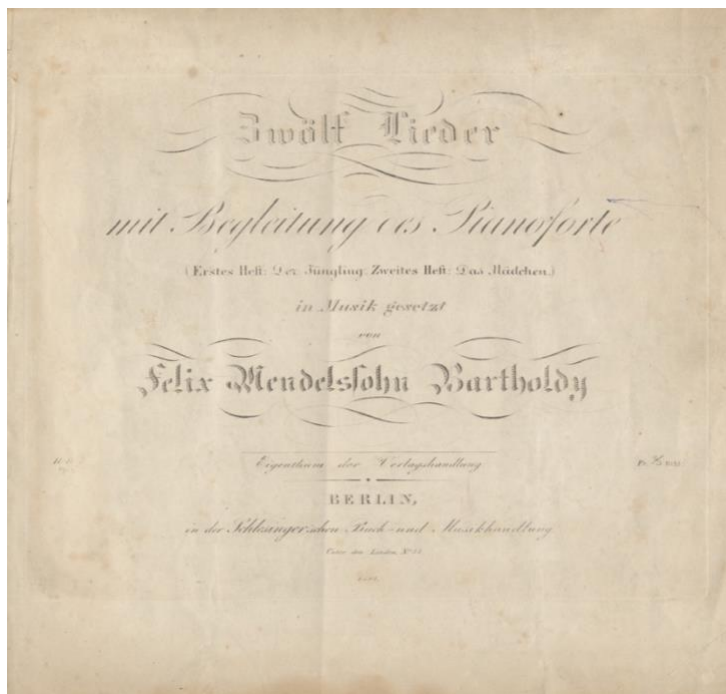 Zwölf Lieder
mit Begleitung des Pianoforte
(Erstes Heft: Der Jüngling. Zweites Heft: Das Mädchen.)
in Musik gesetzt
von
Felix Mendelssohn Bartholdy
Eigenthum der Verlagshandlung
BERLIN,
in der Schlesinger'schen Buch- und Musikhandlung
Unter den Linden, No